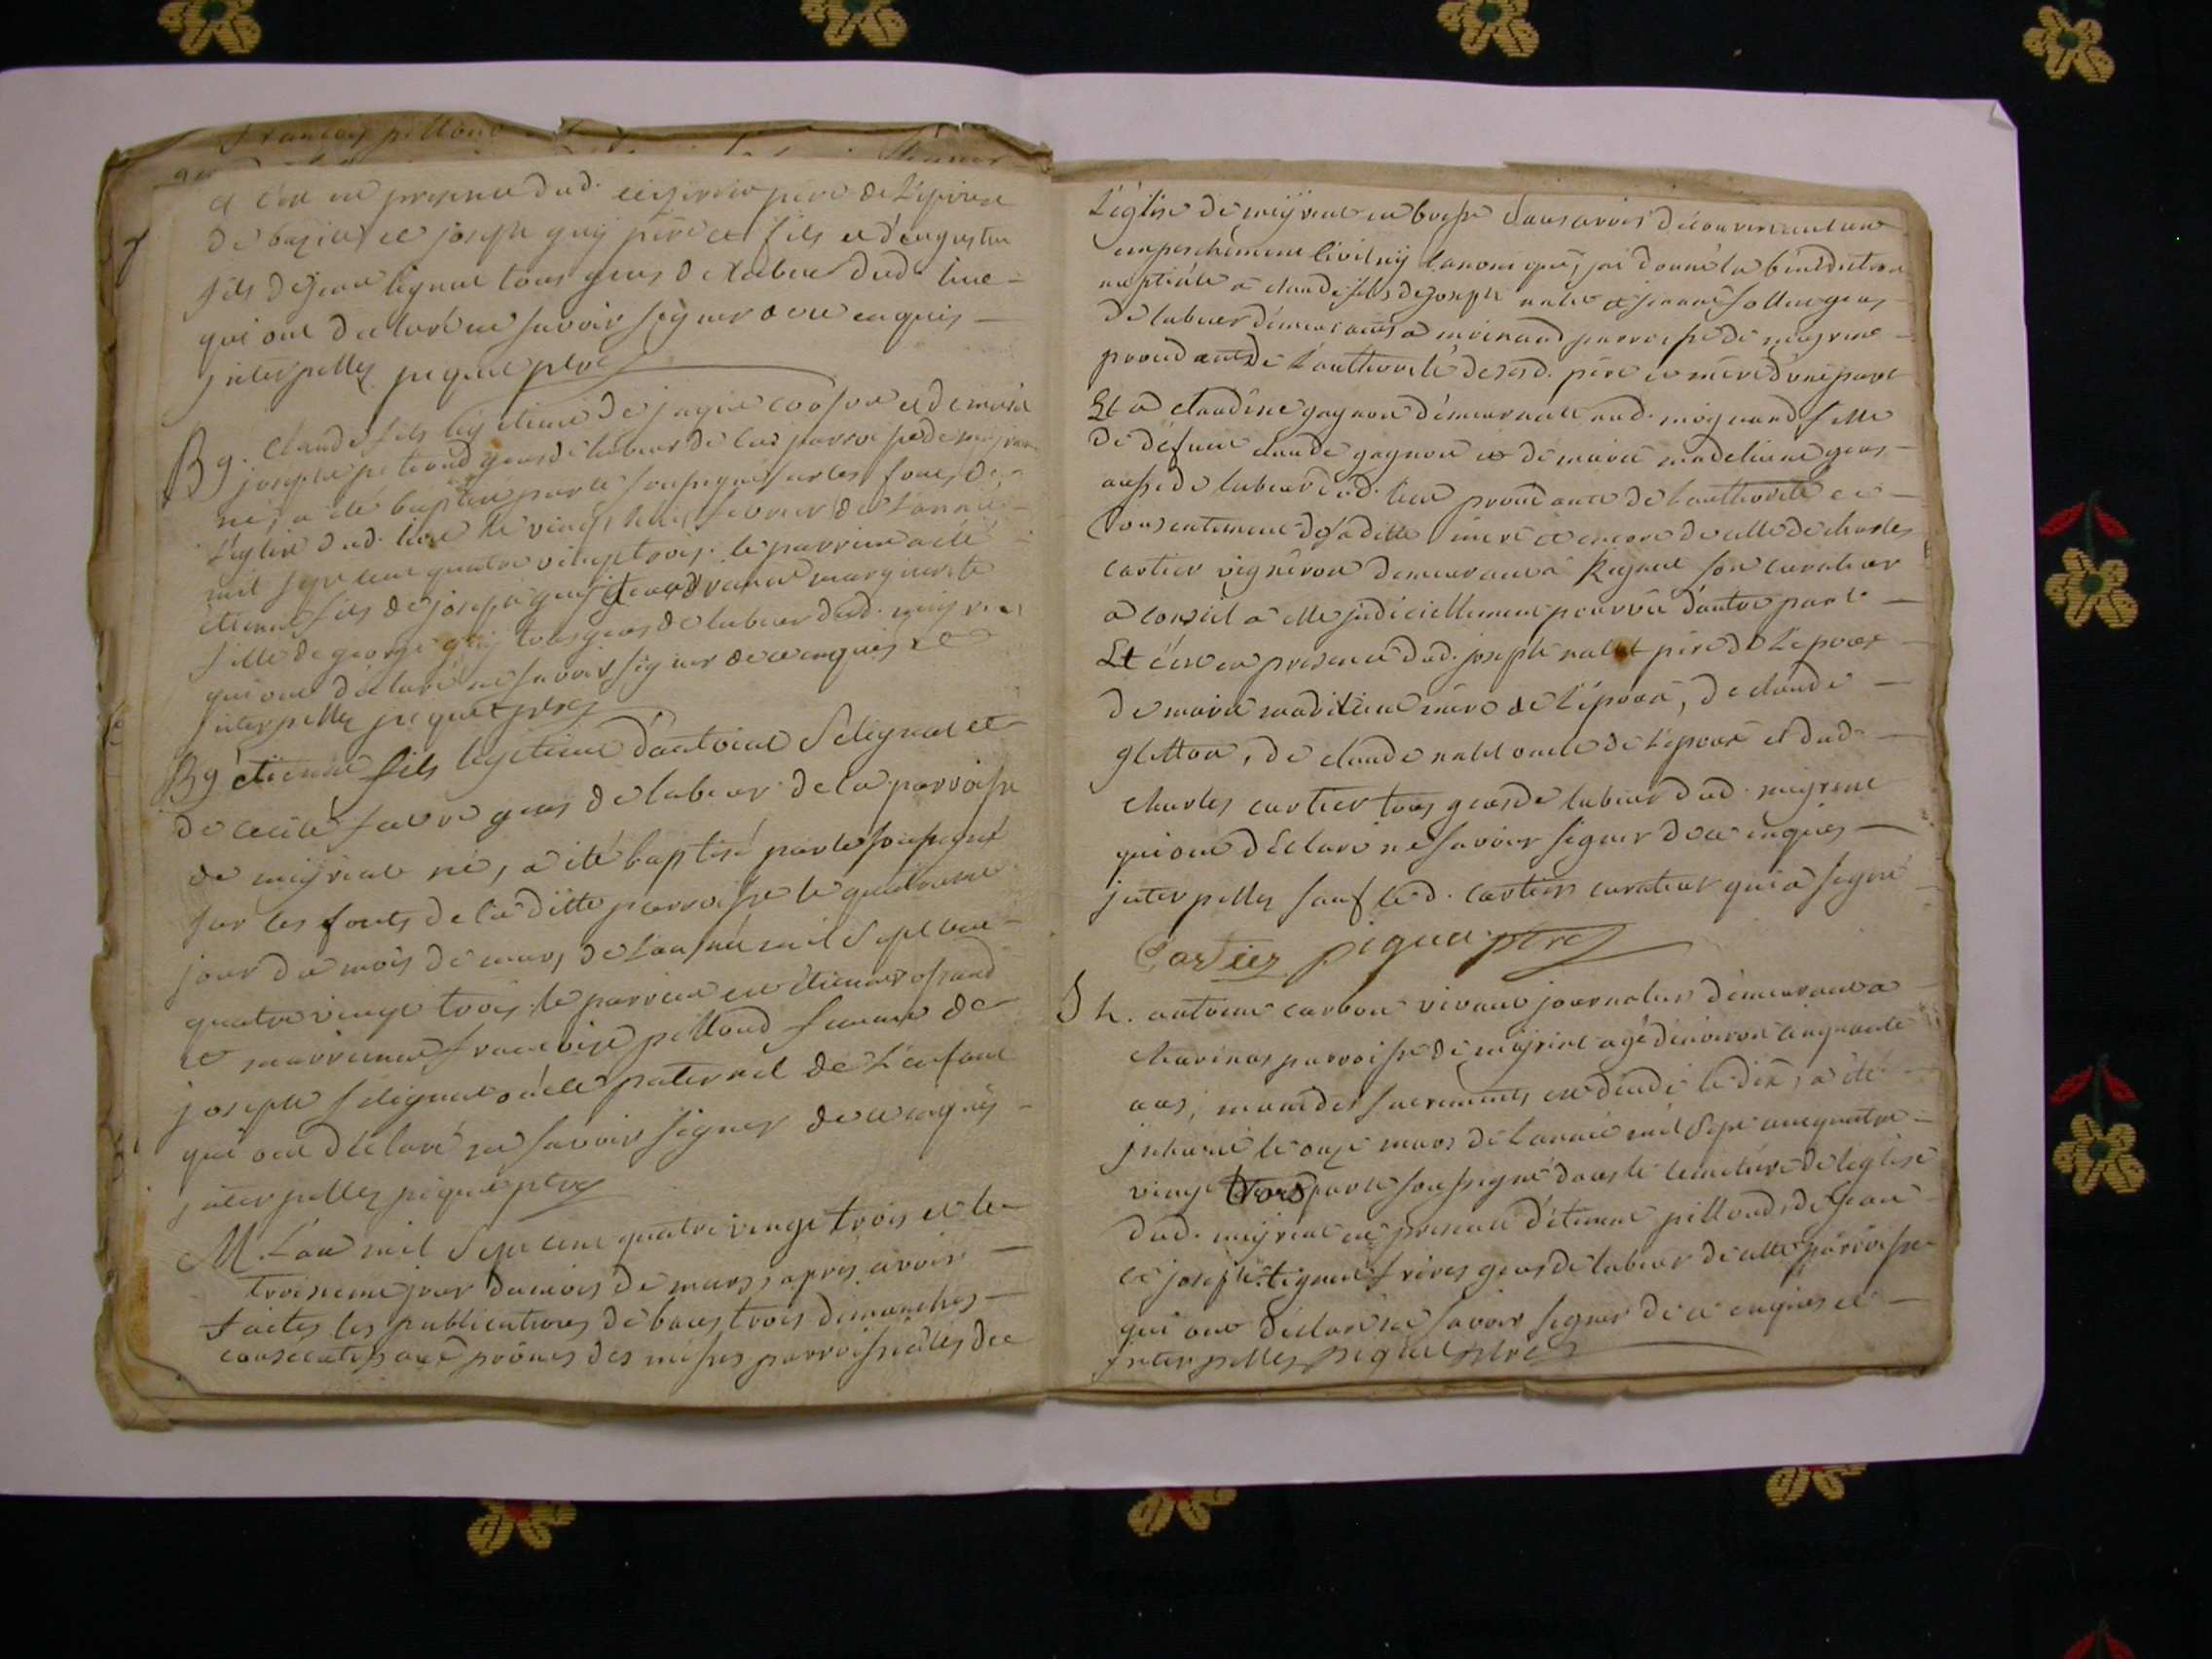 François pilloud
et c'est en presence dud. pere de l'epouse
de bazile et joseph guy père et fils et d'augustin
fils de jean lignet tous gens de labeur dud. lieu
qui ont declaré ne savoir signer de ce enquis
interpellez piquet ptre
Bg. claude fils legitime de jaque et de marie
josephe pitioud gens de labeur de parroisse de meyriat
né, a été baptisé par le soussigné sur les fonts de
l'eglise dud. lieu le vingt huit fevrier de l'année
mil sept cent quatre vingt trois. le parrein a été
étienne fils de joseph guy marguerite
fille de george guy tous gens de labeur dud. meyriat
qui ont déclaré ne savoir signer de ce enquis et
interpellez piquet ptre
Bg étienne fils legitime d'antoine Selignat et
de cecile favre gens de labeur de la parroisse
de meyriat né, a été baptisé par le soussigné
sur les fonts de la ditte parroisse le quatrieme
jour du mois de mars de l'année mil sept cent
quatre vingt trois. le parrein est étienne
et marreine françoise pilloud femme de
joseph selignat oncle paternel de l'enfant
qui ont déclaré ne savoir signer de ce enquis
interpellez piquet ptre
M. L'an mil sept cent quatre vingt trois et le
troisieme jour du mois de mars, après avoir
faites les publications de bans trois dimanches
consecutifs aux prônes des messes parroissiales de
L'église de meyriat en bresse sans avoir découvert aucun
empeschement civil ny canonique, j'ai donné la bénédiction
nuptiale à claude fils de joseph nallet et jeanne gens
de labeur demeurants a parroisse de meyriat
procedants de l'authorité de sesd. père et mère d'une part
Et a claudine gagnon demeurante aud. fille
de défunt claude gagnon et de marie madeleine gens
aussi de labeur dud. lieu procedante de l'authorité et
consentement de sa ditte mère et encore de celle de charles
cartier vigneron demeurant à Rignat son curateur
a conseil a elle judiciellement pourvu d'autre part
Et c'est en presence dud. joseph nallet père de l'epoux
de marie madeleine mère de l'épouse, de claude
gletton, de claude nallet oncle de l'epoux et dud.
charles cartier tous gens de labeur dud. meyriat
qui ont déclaré ne savoir signer de ce enquis
interpellez sauf led. cartier curateur qui a signé
Cartier piquet ptre
S h. antoine carbon vivant journalier demeurant a
charinas parroisse de meyriat agé d'environ cinquante
ans, muni des sacrements est décédé le dix, a été
inhumé le onze mars de l'année mil sept cent quatre
vingt trois par le soussigné dans le cimetière de l'eglise
dud. meyriat en presence d'étienne pilloud, de jean
et joseph lignet frères gens de labeur de cette parroisse
qui ont déclaré ne savoir signer de ce enquis et
interpellez piquet ptre